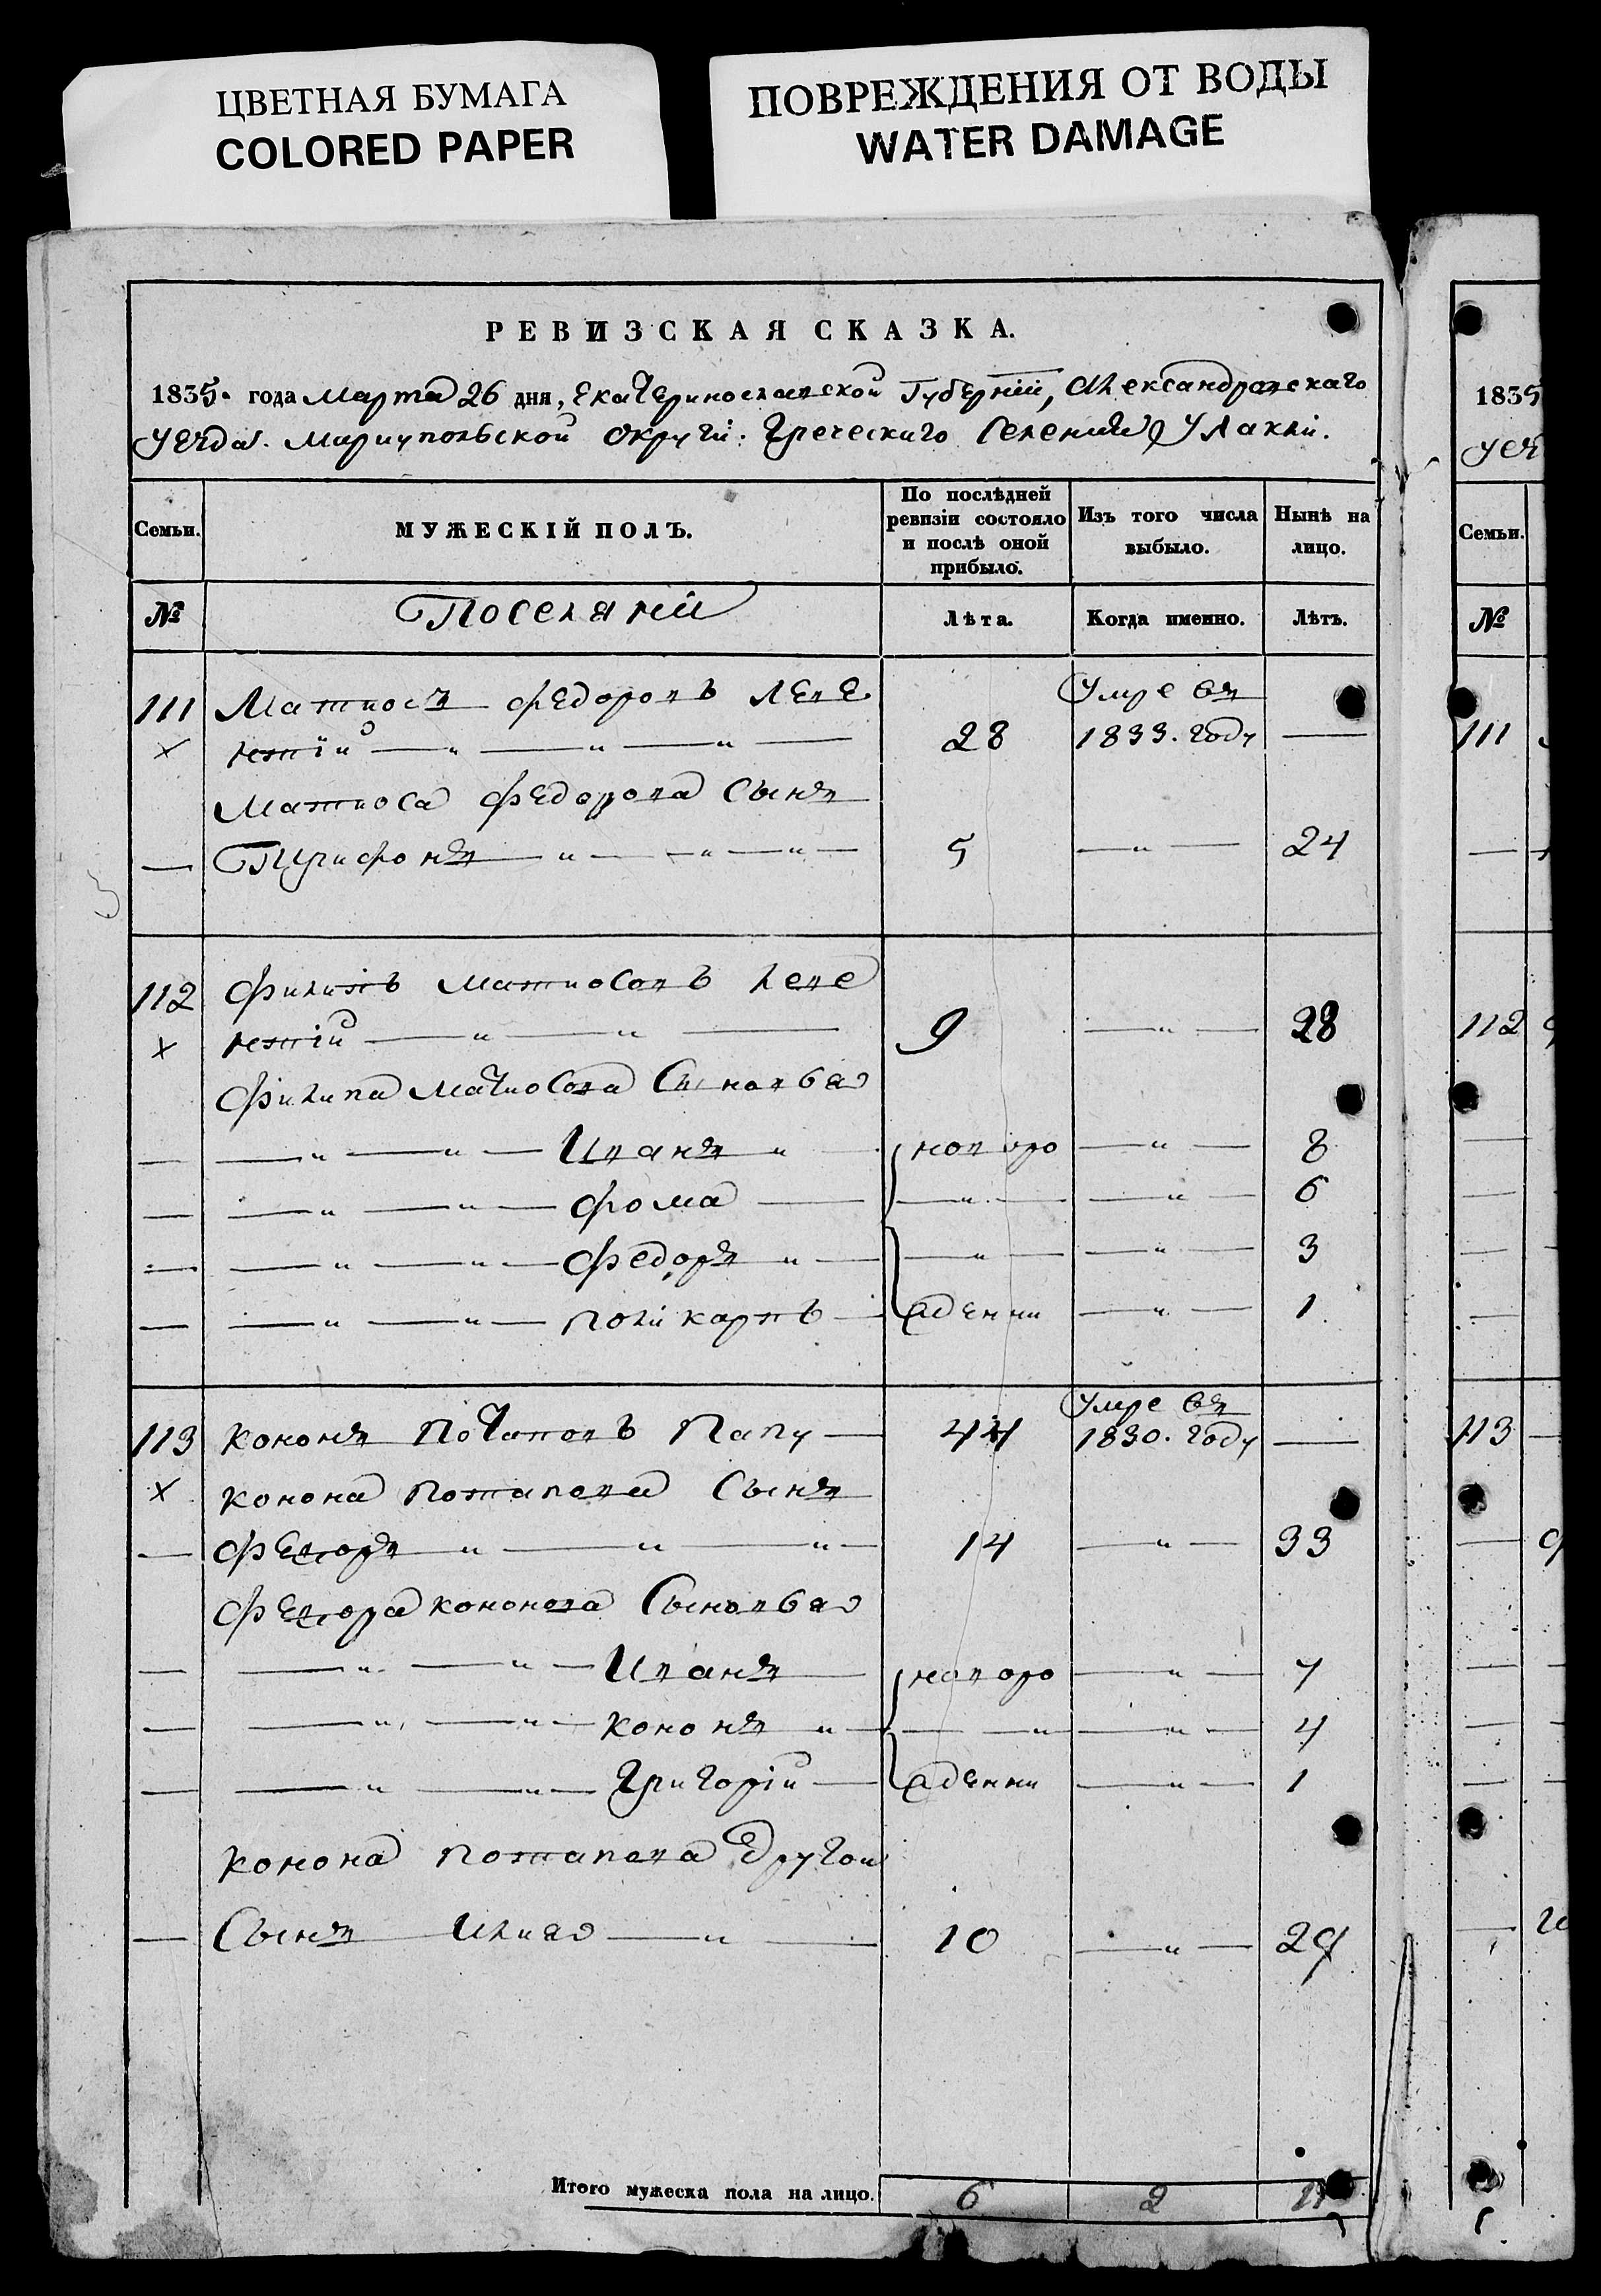 ЦВЕТНАЯ БУМАГА
COLORED PAPER
ПОВРЕЖДЕНИЯ ОТ ВОДЫ
WATER DAMAGE
РЕВИЗСКАЯ СКАЗКА.
1835. года Марта 26 дня, Екатеринославской Губерніи, Александровскаго
уезда. Мариупольской округи: Греческаго Селения Улакли.
Семьи.
МУЖЕСКІЙ ПОЛЪ.
По послѣдней ревизіи состояло и послѣ оной прибыло.
Изъ того числа выбыло.
Нынѣ на лицо.
№
Поселяни
Лѣта.
Когда именно.
Лѣтъ.
111 Матиосъ Федоровъ Леве Умре въ
х нтій — „ — „ — „ — 28 1833. году —
Матиоса Федорова Сынъ
— Трифонъ — „ — „ — „ — 5 — „ — 24
112 Филипъ Матиосовъ Леве
х нтій — „ — „ — 9 — „ — 28
Филипа Матиосова Сыновья
— — „ — „ — Иванъ „ — новоро — „ — 8
— — „ — „ — Фома — — „ — — „ — 6
— — „ — „ — Федоръ „ — — „ — — „ — 3
— — „ — „ — Поликарпъ — жденни — „ — 1
Умре въ
113 Кононъ Потаповъ Папу — 44 1830. году —
х Конона Потапова Сынъ
— Федоръ „ — „ — „ — 14 — „ — 33
Федора Кононова Сыновья
— — „ — „ — Иванъ — новоро — „ — 7
— — „ — „ — Кононъ „ — — „ — „ — 4
— — „ — „ — Григорій — жденни — „ — 1
Конона Потапова другои
— Сынъ Илия — „ — 10 — „ — 29
Итого мужеска пола на лицо. 6 2
1835
Семьи.
№
111
112
113